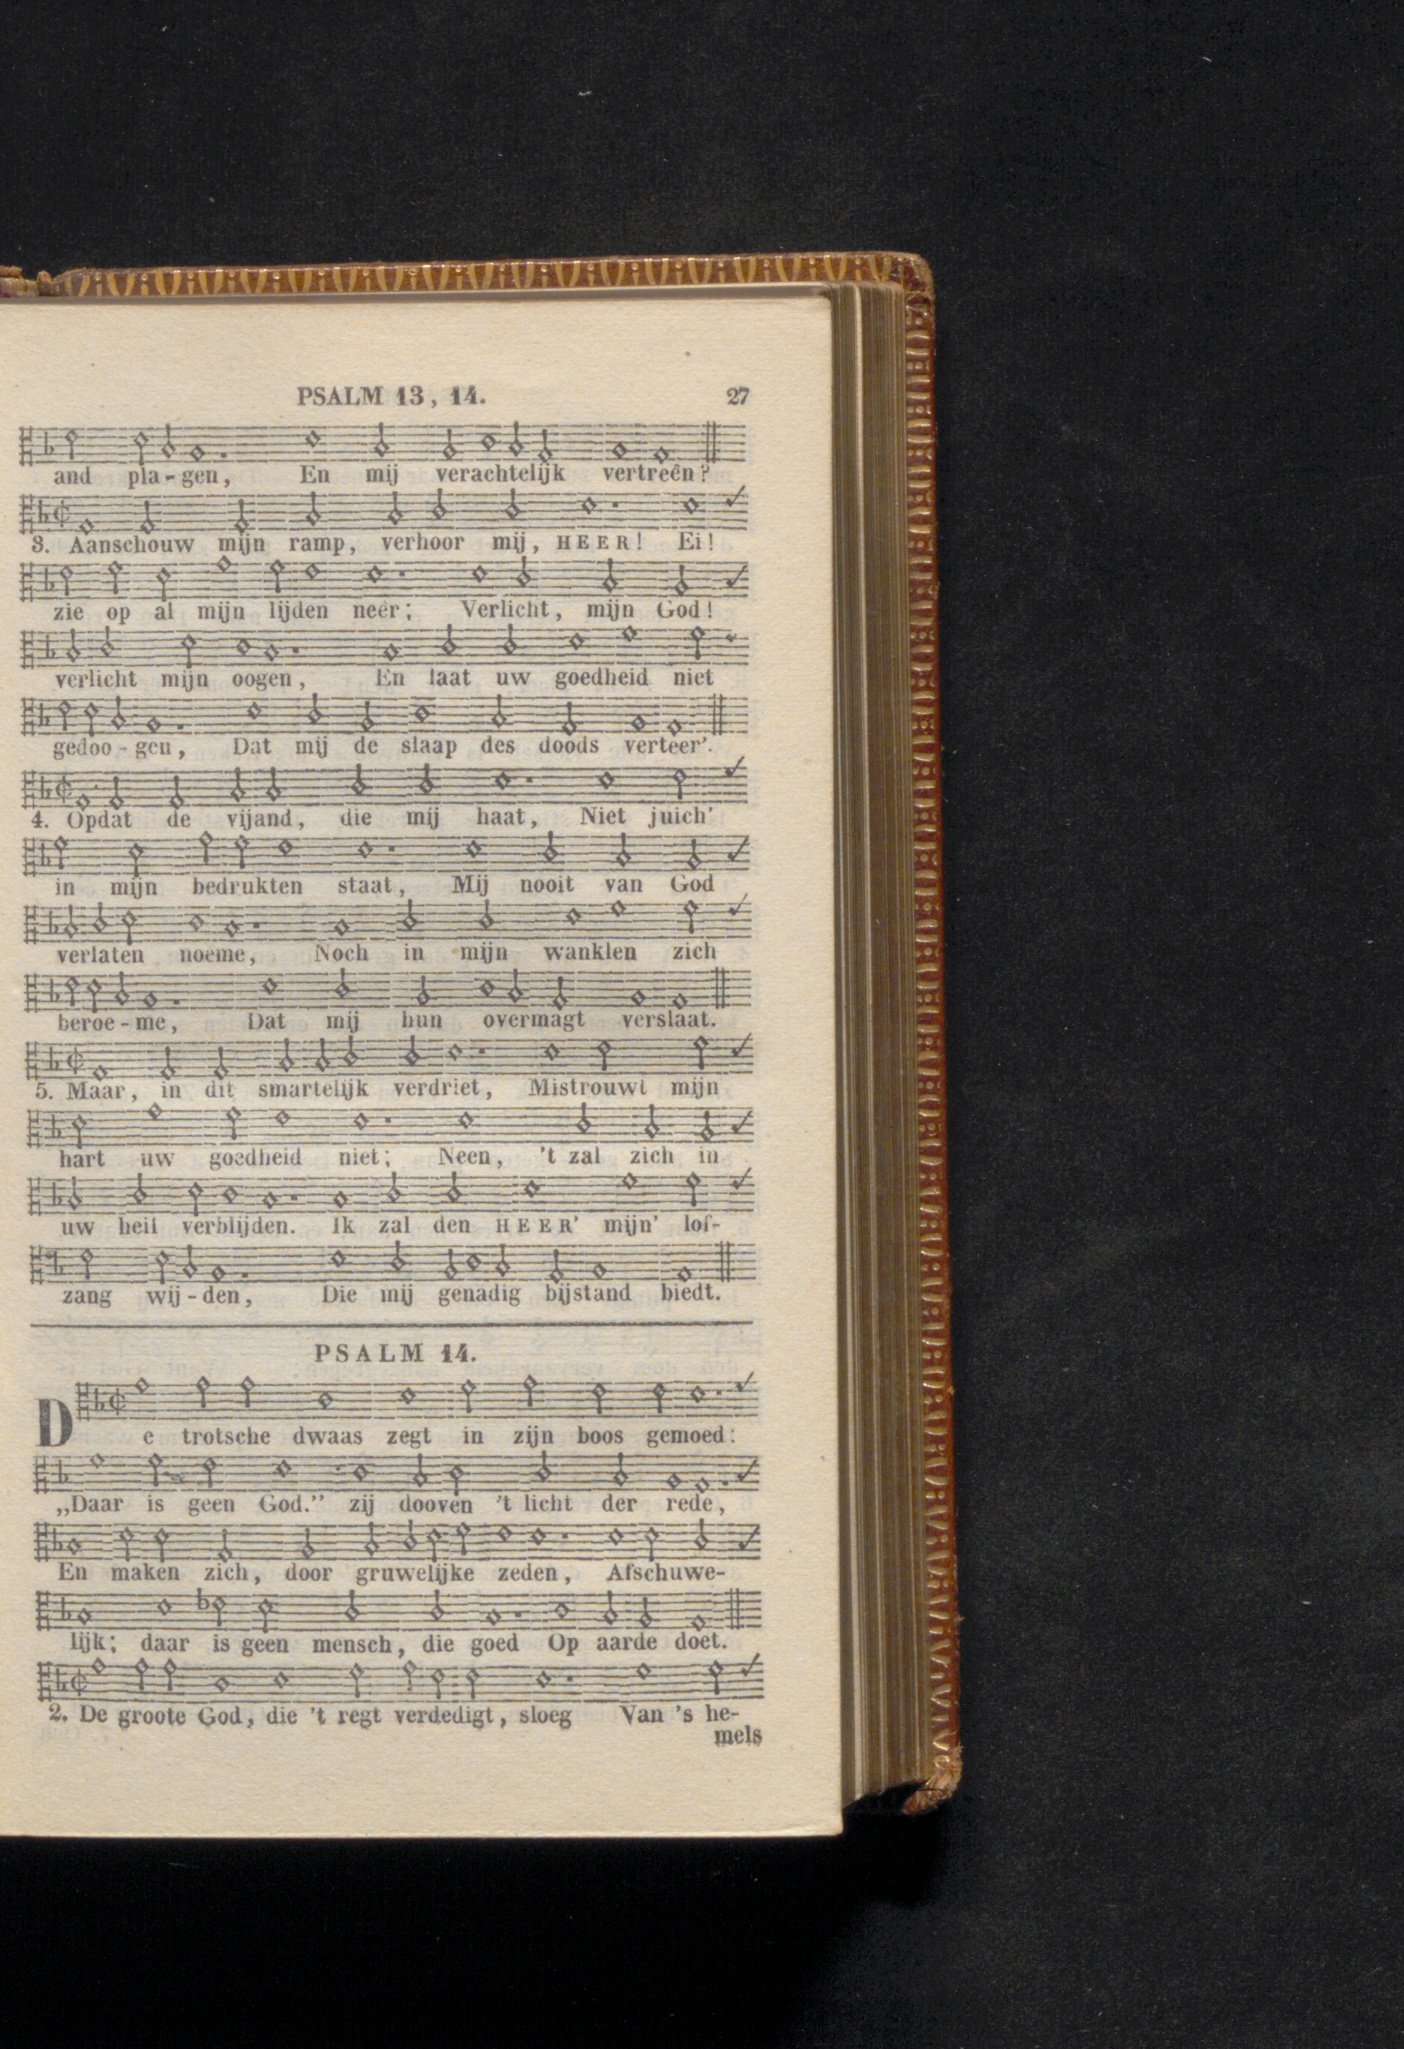 PSALM 13, 14. 27
and pla-gen, En mij verachtelijk vertreên?
3. Aanschouw mijn ramp, verhoor mij, HEER! Ei!
zie op al mijn lijden neêr; Verlicht, mijn God!
verlicht mijn oogen, En laat uw goedheid niet
gedoo-gen, Dat mij de slaap des doods verteer'.
4. Opdat de vijand, die mij haat, Niet juich'
in mijn bedrukten staat, Mij nooit van God
verlaten noeme, Noch in mijn wanklen zich
beroe-me, Dat mij hun overmagt verslaat.
5. Maar, in dit smartelijk verdriet, Mistrouwt mijn
hart uw goedheid niet; Neen, 't zal zich in
uw heil verblijden. Ik zal den HEER' mijn' lof-
zang wij-den, Die mij genadig bijstand biedt.
PSALM 14.
De trotsche dwaas zegt in zijn boos gemoed:
„Daar is geen God.” zij dooven 't licht der rede,
En maken zich, door gruwelijke zeden, Afschuwe-
lijk; daar is geen mensch, die goed Op aarde doet.
2. De groote God, die 't regt verdedigt, sloeg Van 's he-
mels